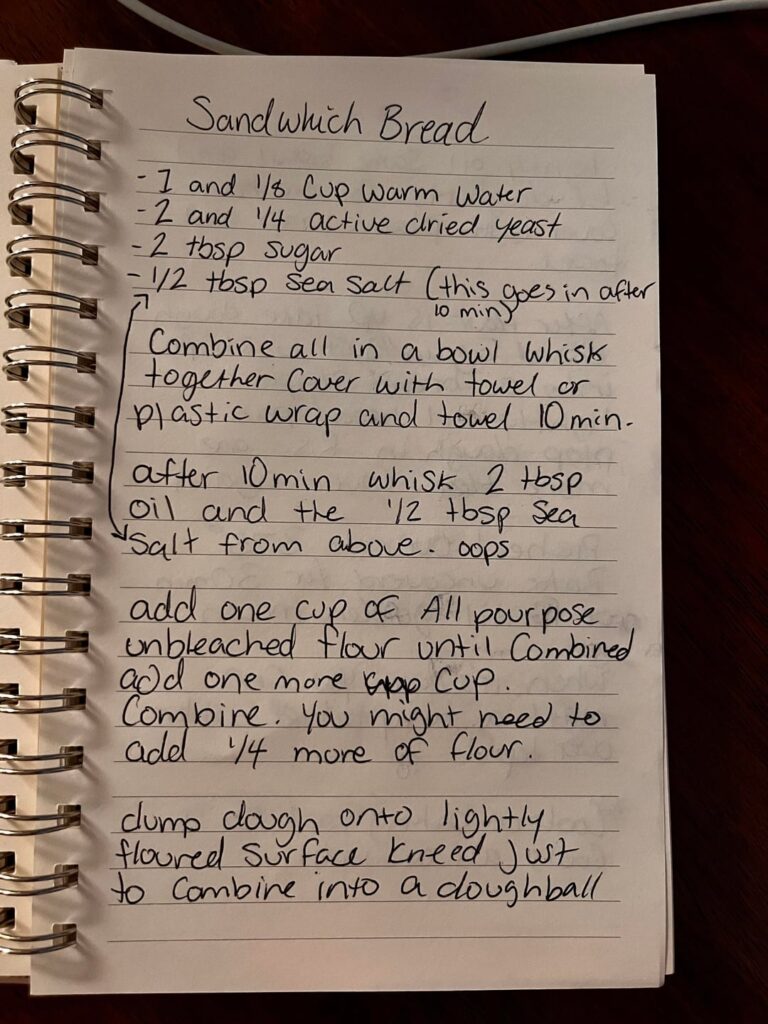 Sandwhich Bread
- 1 and 1/8 Cup warm water
- 2 and 1/4 active dried yeast
- 2 tbsp sugar
- 1/2 tbsp sea salt (this goes in after
10 min)
Combine all in a bowl whisk
together Cover with towel or
plastic wrap and towel 10 min.
after 10 min whisk 2 tbsp
oil and the 1/2 tbsp Sea
Salt from above. oops
add one cup of All pourpose
unbleached flour until Combined
add one more Cup.
Combine. You might need to
add 1/4 more of flour.
dump dough onto lightly
floured Surface kneed just
to Combine into a doughball